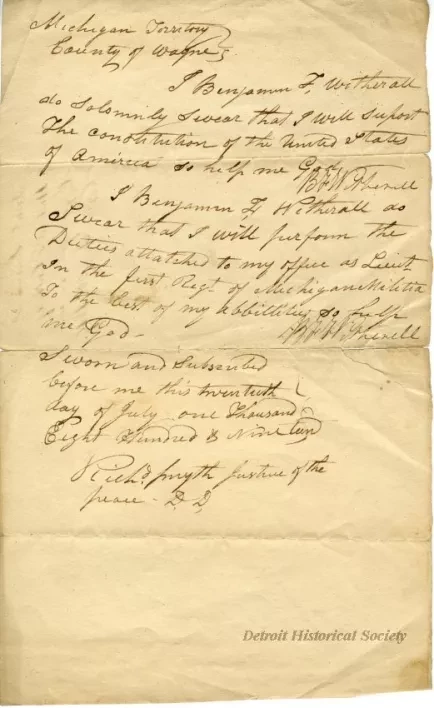 Michigan Territory
County of Wayne
I Benjamin F. Witherall
do Solomnily Swear that I will Suport
The constitution of the United States
of America so help me God
B F H Witherell
I Benjamin F Witherall do
Swear that I will purfoum the
Dieties attatched to my office as Lieut
In the first Regt. of Michigan Militia
To the best of my abbillities so help
me God-
B F H Witherell
Sworn and Subscribed
before me this twentieth
day of July one Thousand
Eight Hundred & Nineteen
Richd. Smyth Justice of the
peace - D. D
Detroit Historical Society